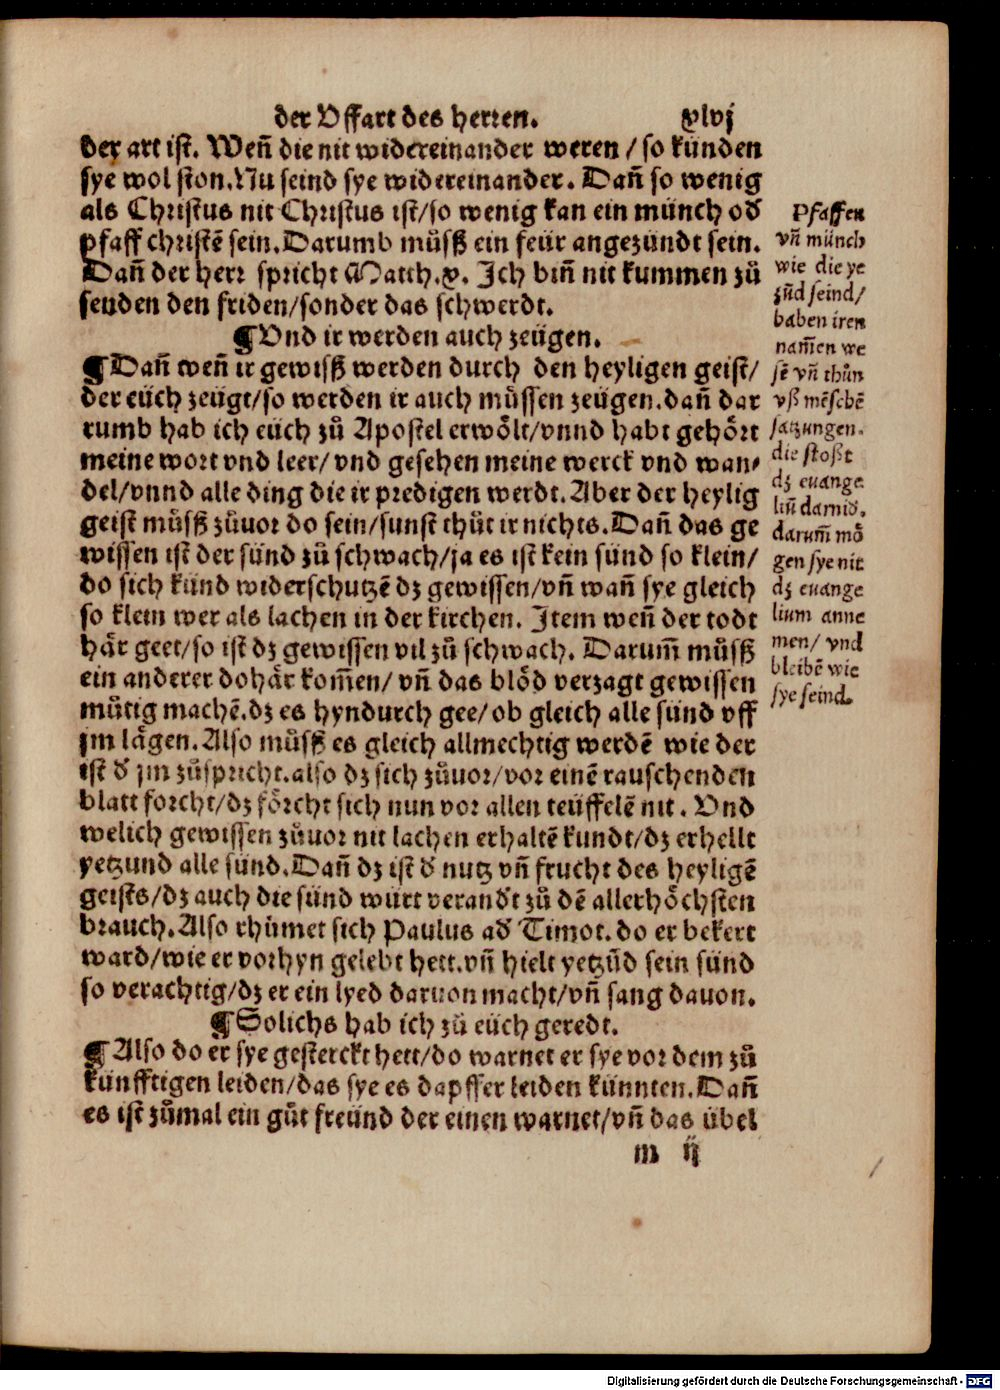 der Vffart des herren. xlvj
der art ist. Weñ die nit widereinander weren / so künden
sye wol ston. Nu seind sye widereinander. Dañ so wenig
als Christus nit Christus ist/so wenig kan ein münch oď
pfaff christē sein. Darumb müſß ein feür angezündt sein.
Dañ der herr spricht Matth.x. Ich biñ nit kummen zů
senden den friden/sonder das schwerdt.
¶Vnd ir werden auch zeügen.
¶Dañ weñ ir gewiſß werden durch den heyligen geist/
der eüch zeügt/so werden ir auch müssen zeügen. dañ dar
rumb hab ich eüch zů Apostel erwölt/vnnd habt gehört
meine wort vnd leer/ vnd gesehen meine werck vnd wan⸗
del/vnnd alle ding die ir predigen werdt. Aber der heylig
geist müſß zůuor do sein/sunst thůt ir nichts. Dañ das ge
wissen ist der sünd zů schwach/ja es ist kein sünd so klein/
do sich künd widerschutzē dz gewissen/vñ wañ sye gleich
so klein wer als lachen in der kirchen. Item weñ der todt
här geet/so ist dz gewissen vil zů schwach. Darum̄ müſß
ein anderer dohär kom̄en/ vñ das blöd verzagt gewissen
můtig machē. dz es hyndurch gee/ ob gleich alle sünd vff
jm lägen. Also müſß es gleich allmechtig werdē wie der
ist ď jm zůspricht. also dz sich zůuor/vor einē rauschenden
blatt forcht/dz förcht sich nun vor allen teüffelē nit. Vnd
welich gewissen zůuor nit lachen erhaltē kundt/dz erhellt
yetzund alle sünd. Dañ dz ist ď nutz vñ frucht des heyligē
geists/dz auch die sünd würt verandt zů dē allerhöchsten
brauch. Also rhümet sich Paulus ad Timot. do er bekert
ward/wie er vorhyn gelebt hett. vñ hielt yetzūd sein sünd
so verachtig/dz er ein lyed daruon macht/vñ sang dauon.
¶Solichs hab ich zů eüch geredt.
¶Also do er sye gesterckt hett/do warnet er sye vor dem zů
künfftigen leiden/das sye es dapffer leiden künnten. Dañ
es ist zůmal ein gůt freünd der einen warnet/vñ das übel
m ij
Pfaffen
vñ münch
wie die ye
zūd seind/
haben iren
nam̄en we
sē vñ thůn
vß mēschē
satzungen.
die stoßt
dz euange
liū damid.
darum̄ mö
gen sye nit
dz euange
lium anne
men/ vnd
bleibē wie
sye seind.
Digitalisierung gefördert durch die Deutsche Forschungsgemeinschaft - DFG